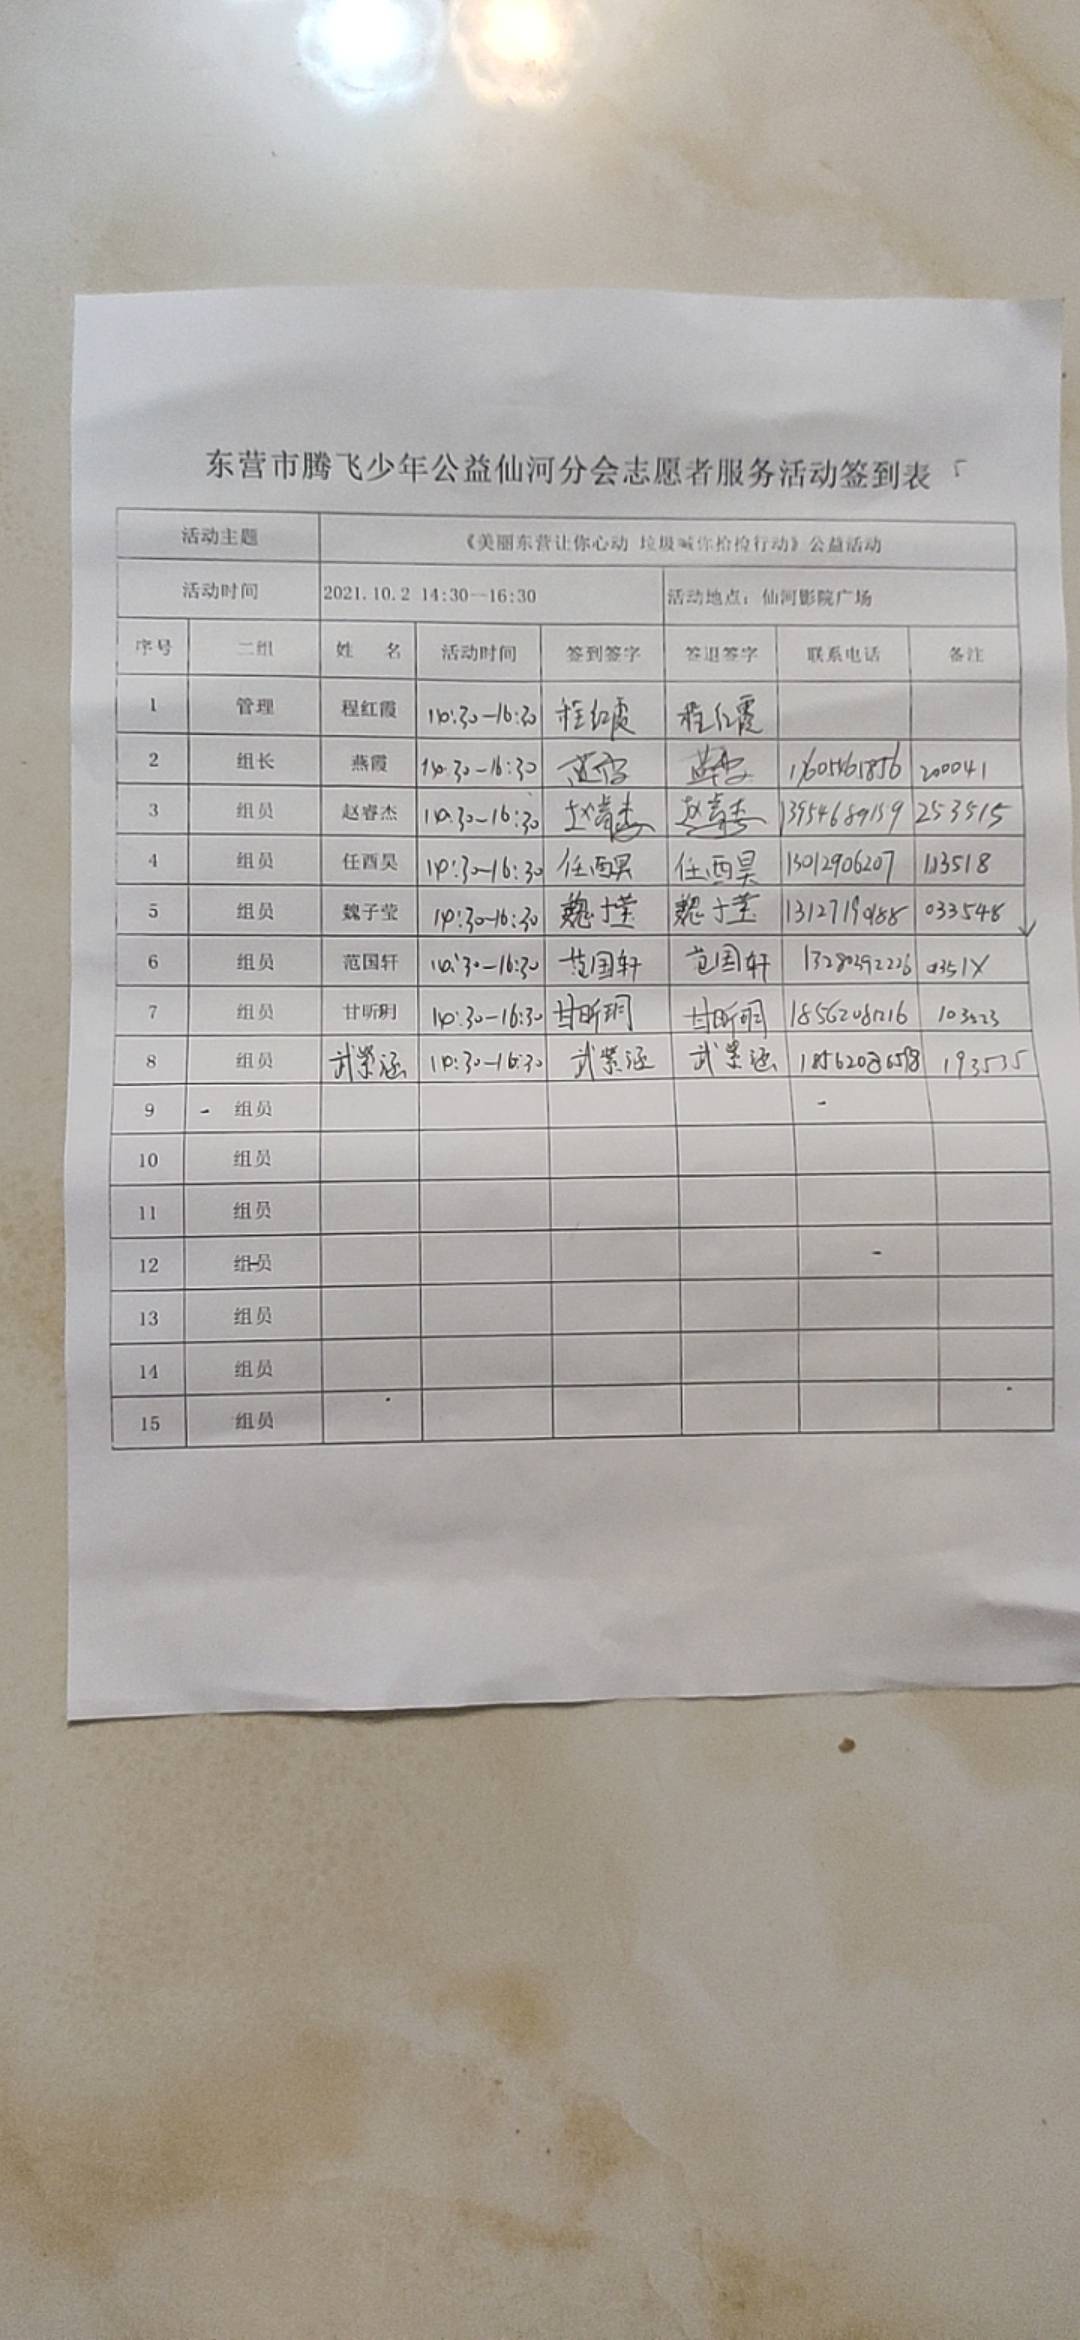 东营市腾飞少年公益仙河分会志愿者服务活动签到表
活动主题 《美丽东营让你心动 垃圾喊你拾捡行动》公益活动
活动时间 2021.10.2 14:30—16:30 活动地点：仙河影院广场
序号 二组 姓 名 活动时间 签到签字 签退签字 联系电话 备注
1 管理 程红霞 14:30-16:30 程红霞 程红霞
2 组长 燕霞 14:30-16:30 200041
3 组员 赵睿杰 14:30-16:30 赵睿杰 赵睿杰 13954689159 253515
4 组员 任酉昊 14:30-16:30 任酉昊 任酉昊 13012906207 113518
5 组员 魏子莹 14:30-16:30 魏子莹 魏子莹 13127190188 033548
6 组员 范国轩 14:30-16:30 范国轩 范国轩 13280392226
7 组员 甘昕玥 14:30-16:30 甘昕玥 甘昕玥
8 组员 武紫涵 14:30-16:30 武紫涵 武紫涵 193535
9 组员
10 组员
11 组员
12 组员
13 组员
14 组员
15 组员